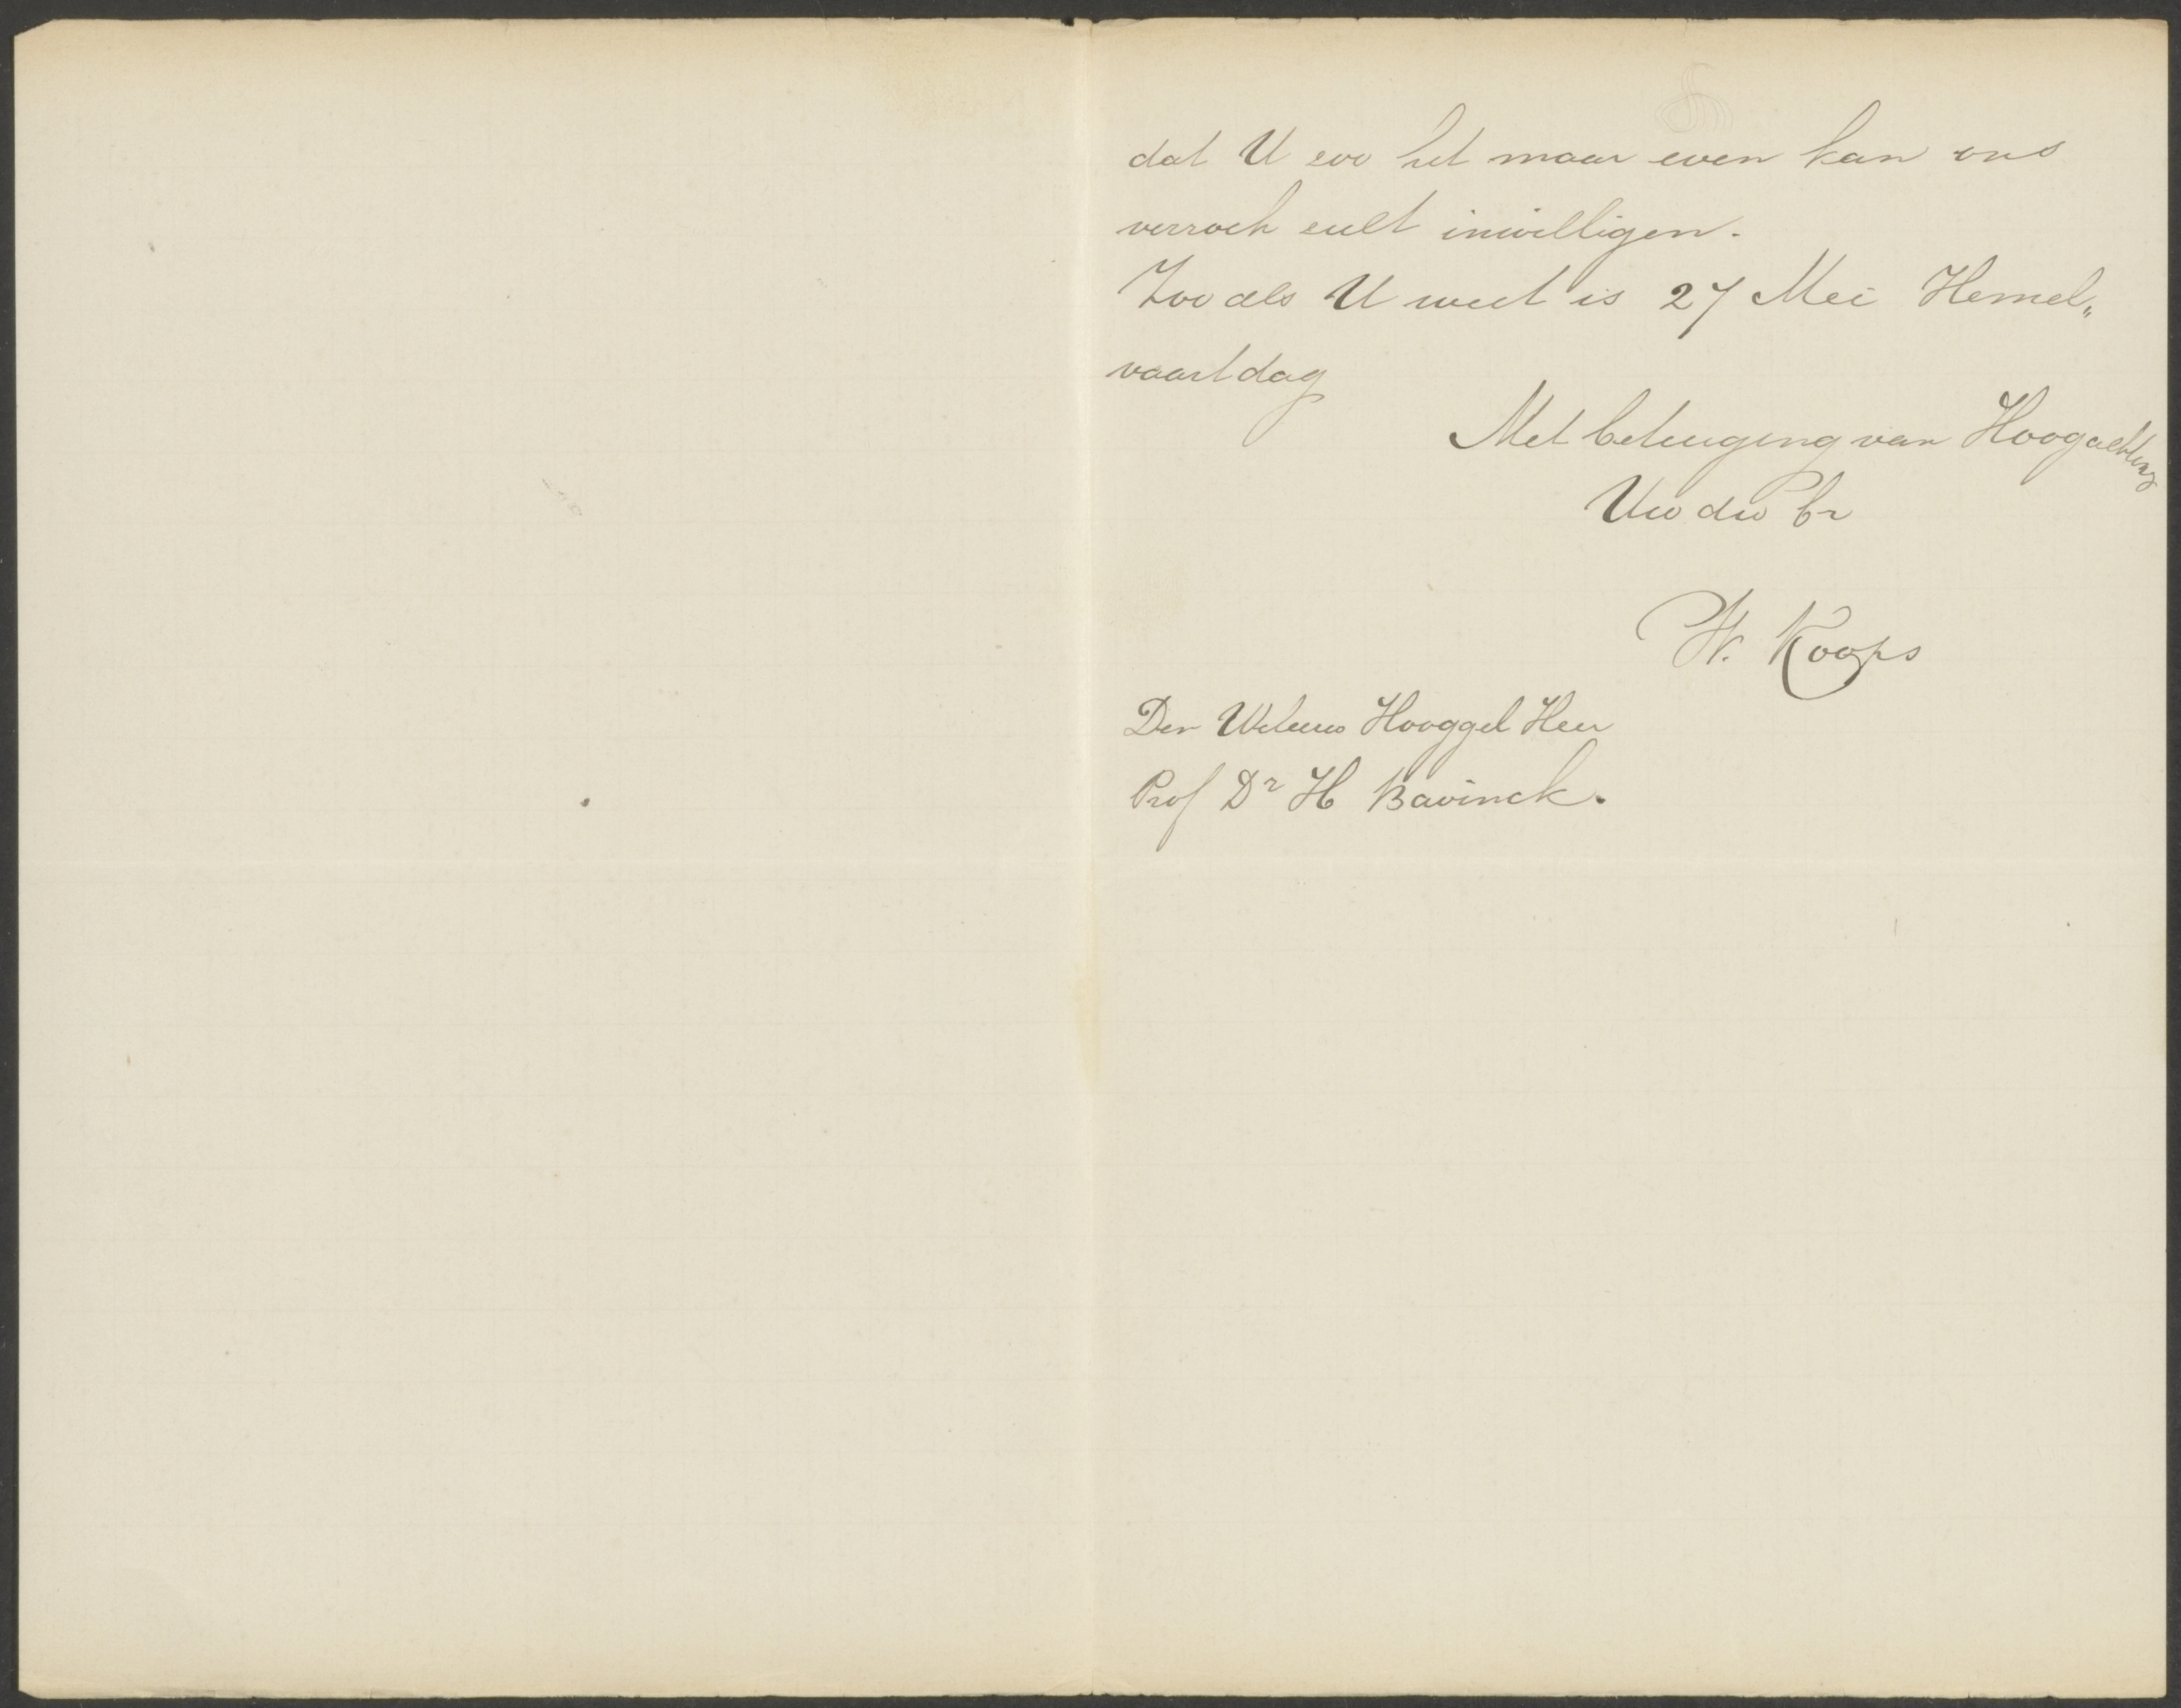 dat U zoo het maar even kan ons
verzoek zult inwilligen.
Zooals U weet is 27 Mei Hemel„
vaartdag
Met betuiging van Hoogachting
Uw dw br
W. Koops
Den Weleerw Hooggel Heer
Prof Dr H Bavinck.